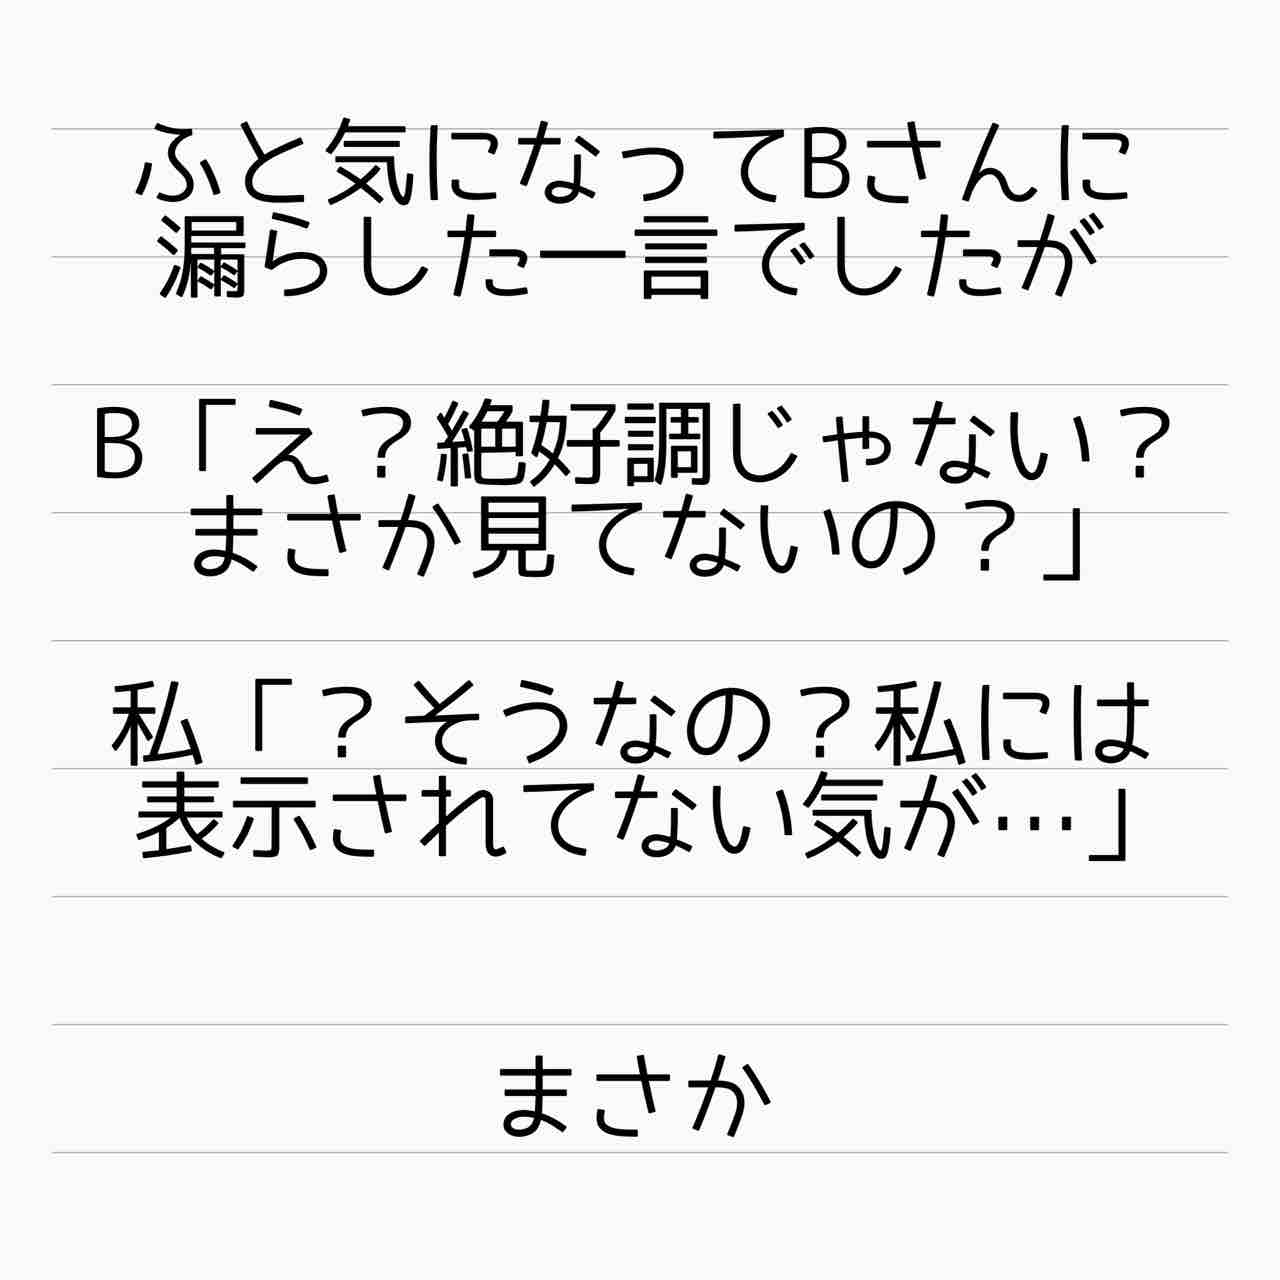 ふと気になってBさんに
漏らした一言でしたが
B「え？絶好調じゃない？
まさか見てないの？」
私「？そうなの？私には
表示されてない気が…」
まさか